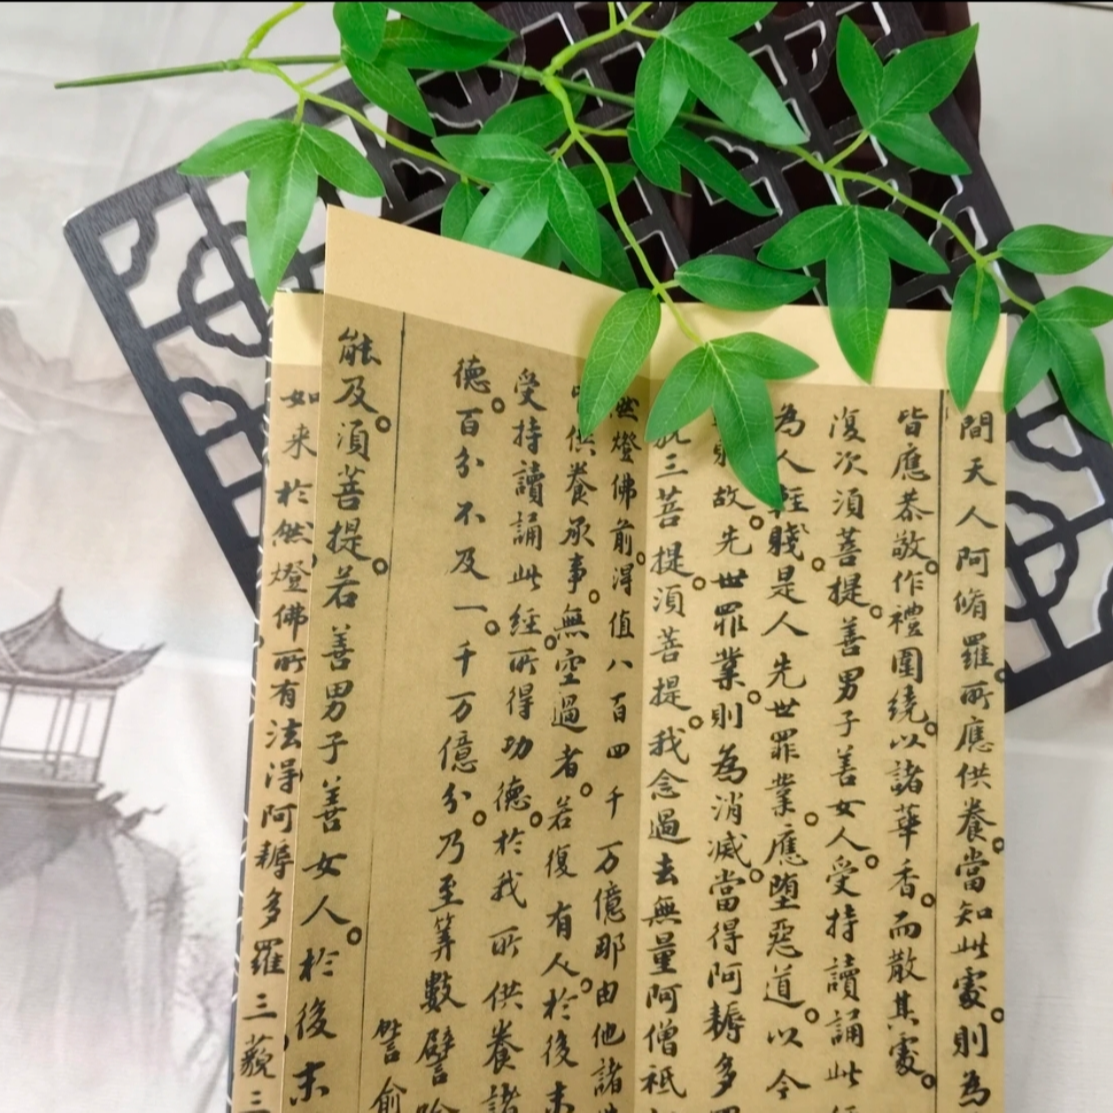 間天人阿脩羅。所應供養。當知此處。則為
皆應恭敬。作禮圍繞。以諸華香。而散其處。
復次須菩提。善男子善女人。受持讀誦此
為人輕賤。是人先世罪業。應堕惡道。以今
故。先世罪業。則為消滅。當得阿耨多
三菩提。須菩提。我念過去無量阿僧祇
然燈佛前。得值八百四千万億那由他諸
供養承事。無空過者。若復有人。於後末
受持讀誦此經。所得功德。於我所供養諸
德。百分不及一。千万億分。乃至筭數譬
能及。須菩提。若善男子善女人。於後末
如来於然燈佛所有法得阿耨多羅三藐三